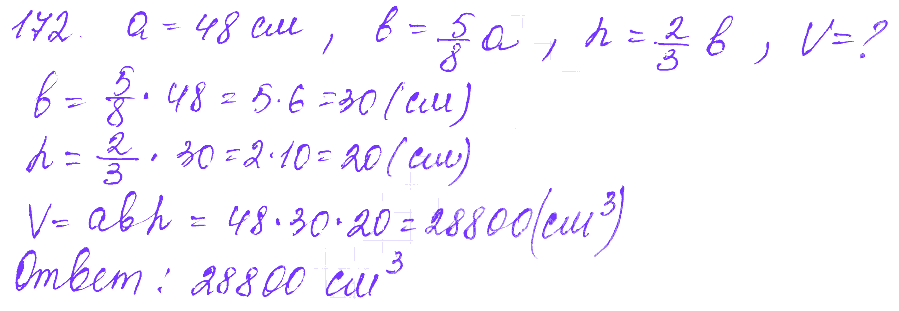 172. a = 48 см, b = 5/8 a, h = 2/3 b, V = ?
b = 5/8 · 48 = 5 · 6 = 30 (см)
h = 2/3 · 30 = 2 · 10 = 20 (см)
V = abh = 48 · 30 · 20 = 28800 (см³)
Ответ: 28800 см³